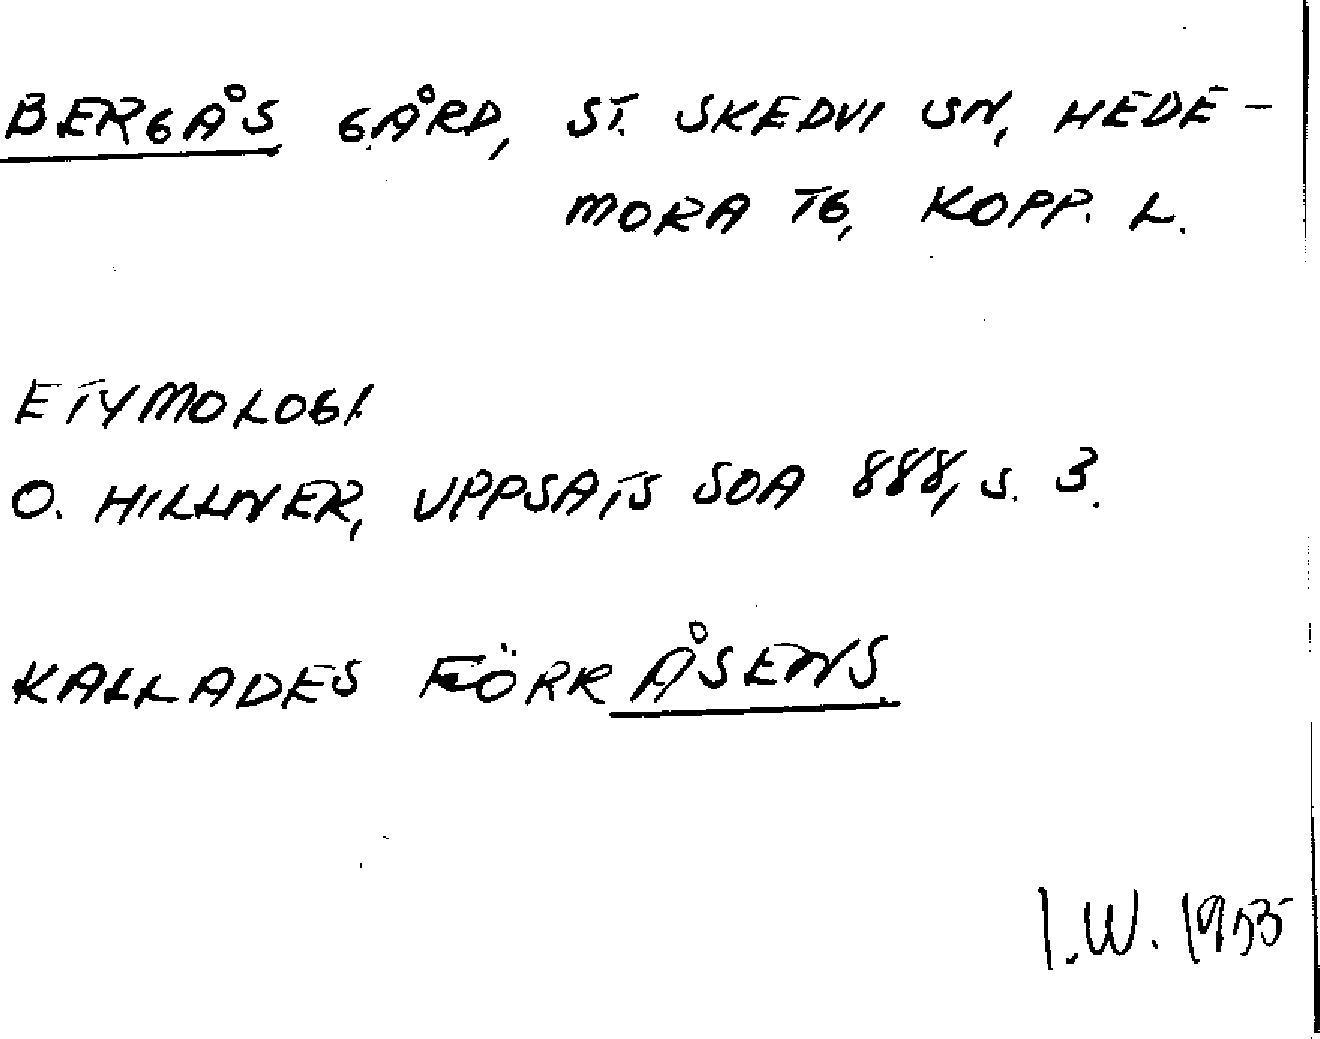 BERGÅS GÅRD, ST. SKEDVI SN, HEDE-
MORA TG, KOPP. L.
ETYMOLOGI.
O. HILLNER, UPPSATS SOA 888, S. 3.
KALLADES FÖRR ÅSENS.
I.W.